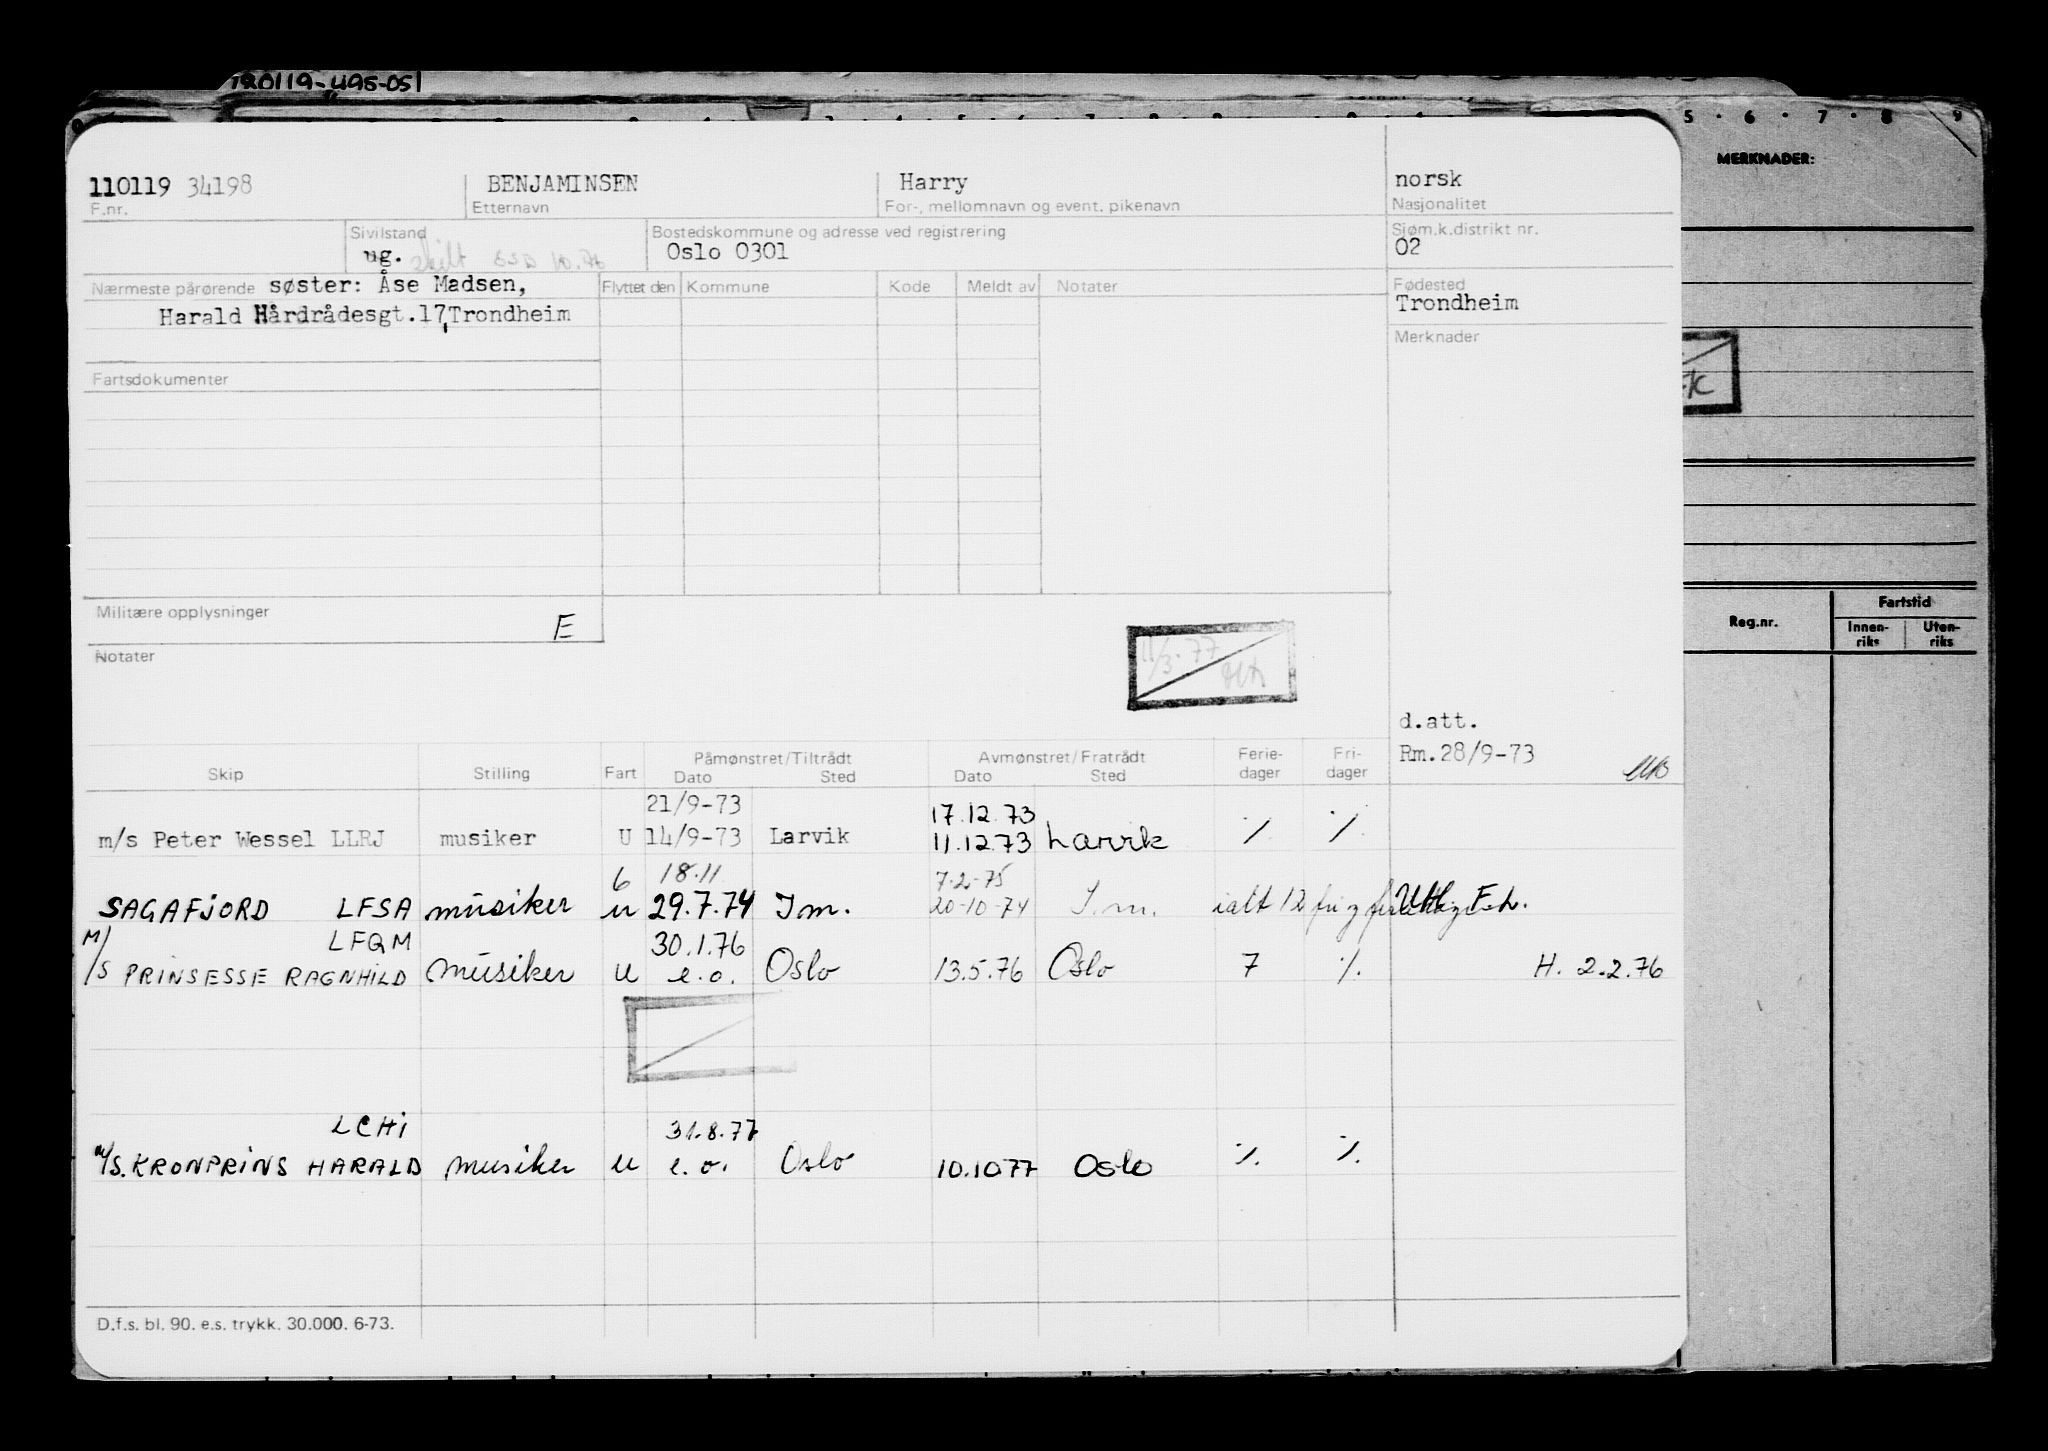 190119-495-051
5 · 6 · 7 · 8 9
MERKNADER:
110119 34198 BENJAMINSEN Harry norsk
F.nr. Etternavn For-, mellomnavn og event. pikenavn Nasjonalitet
Sivilstand Bostedskommune og adresse ved registrering Sjøm.k.distrikt nr.
ug. skilt SSD 10.76 Oslo 0301 02
Nærmeste pårørende søster: Åse Madsen, Flyttet den Kommune Kode Meldt av Notater Fødested
Harald Hårdrådesgt.17, Trondheim Trondheim
Merknader
Fartsdokumenter
Militære opplysninger E
Notater
11/3-77
d.att.
Rm.28/9-73
Skip Stilling Fart Påmønstret/Tiltrådt Dato Sted Avmønstret/Fratrådt Dato Sted Ferie-dager Fri-dager
21/9-73 17.12.73
m/s Peter Wessel LLRJ musiker U 14/9-73 Larvik 11.12.73 Larvik ٪ ٪
6 18.11 7.2.75
SAGAFJORD LFSA musiker u 29.7.74 Im. 20-10-74 I.m. ialt 12 fri
LFQM 30.1.76
M/S PRINSESSE RAGNHILD musiker u e.o. Oslo 13.5.76 Oslo 7 ٪ H. 2.2.76
LCHI 31.8.77
M/S. KRONPRINS HARALD musiker u e.o. Oslo 10.10.77 Oslo ٪ ٪
D.f.s. bl. 90. e.s. trykk. 30.000. 6-73.
Reg.nr. Fartstid
Innen-riks Uten-riks